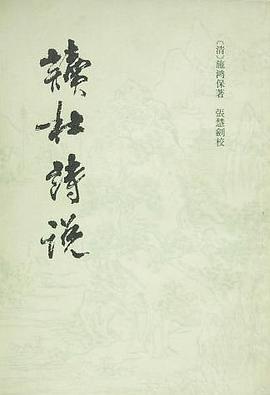 〔清〕施鸿保著 張慧劍校
讀杜詩说